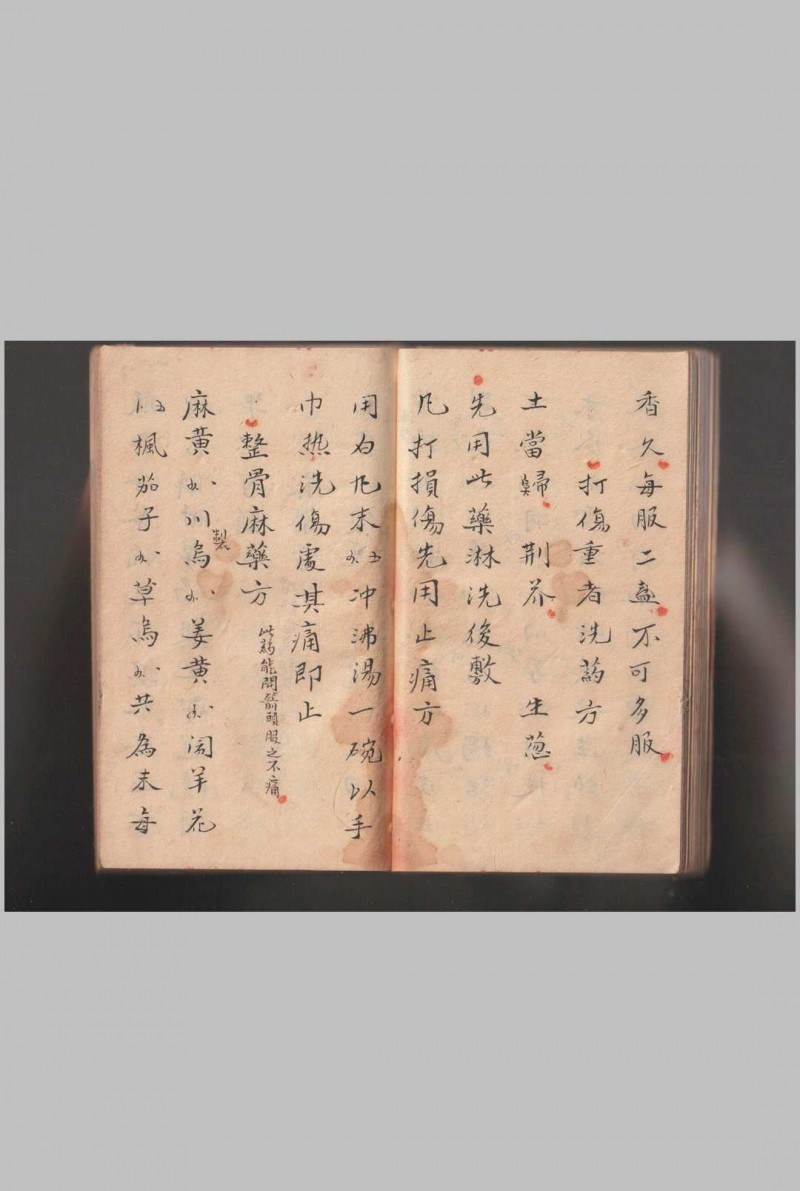 香久每服二盞不可多服
打傷重者洗药方
土當歸 荆芥 生葱
先用此藥淋洗後敷
凡打損傷先用止痛方
用 末 冲沸湯一碗以手
巾热洗傷處其痛即止
整骨麻藥方 此药能開箭頭服之不痛
麻黄 川烏 製 姜黄 闹羊花
楓茄子 草烏 共為末每